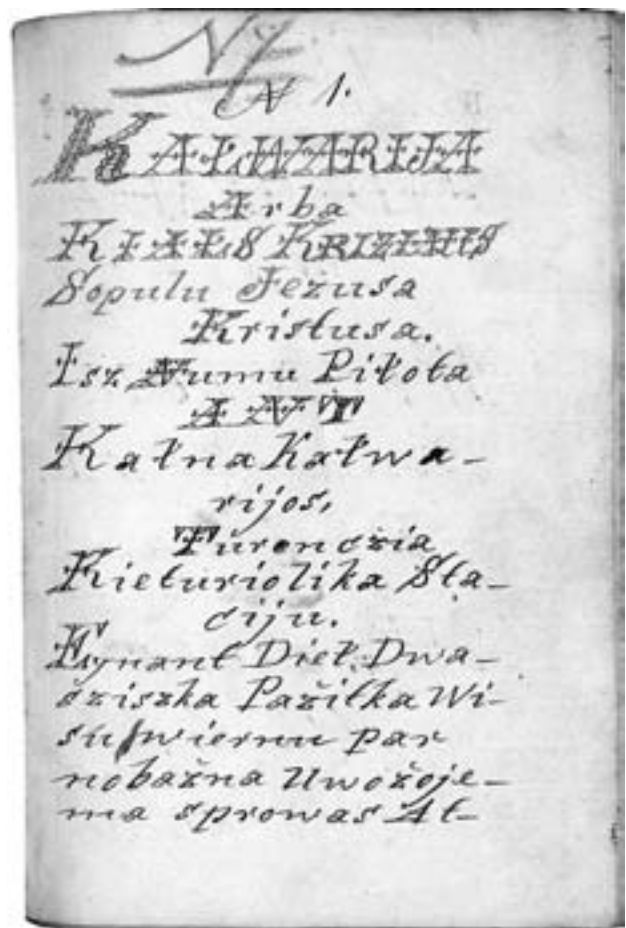 N
N 1.
KAŁWARIJA
Arba
KIALS KRIZIAUS
Sopulu Jezusa
Kristusa.
Isz Numu Piłota
ANT
Kałna Kałwa-
rijos,
Turenczia
Kieturiolika Sta-
ciju.
Eynant Dieł Dwa-
sziszka Pažitka Wi-
su wiernu par
nobažna Uwožoje-
ma sprowas At-